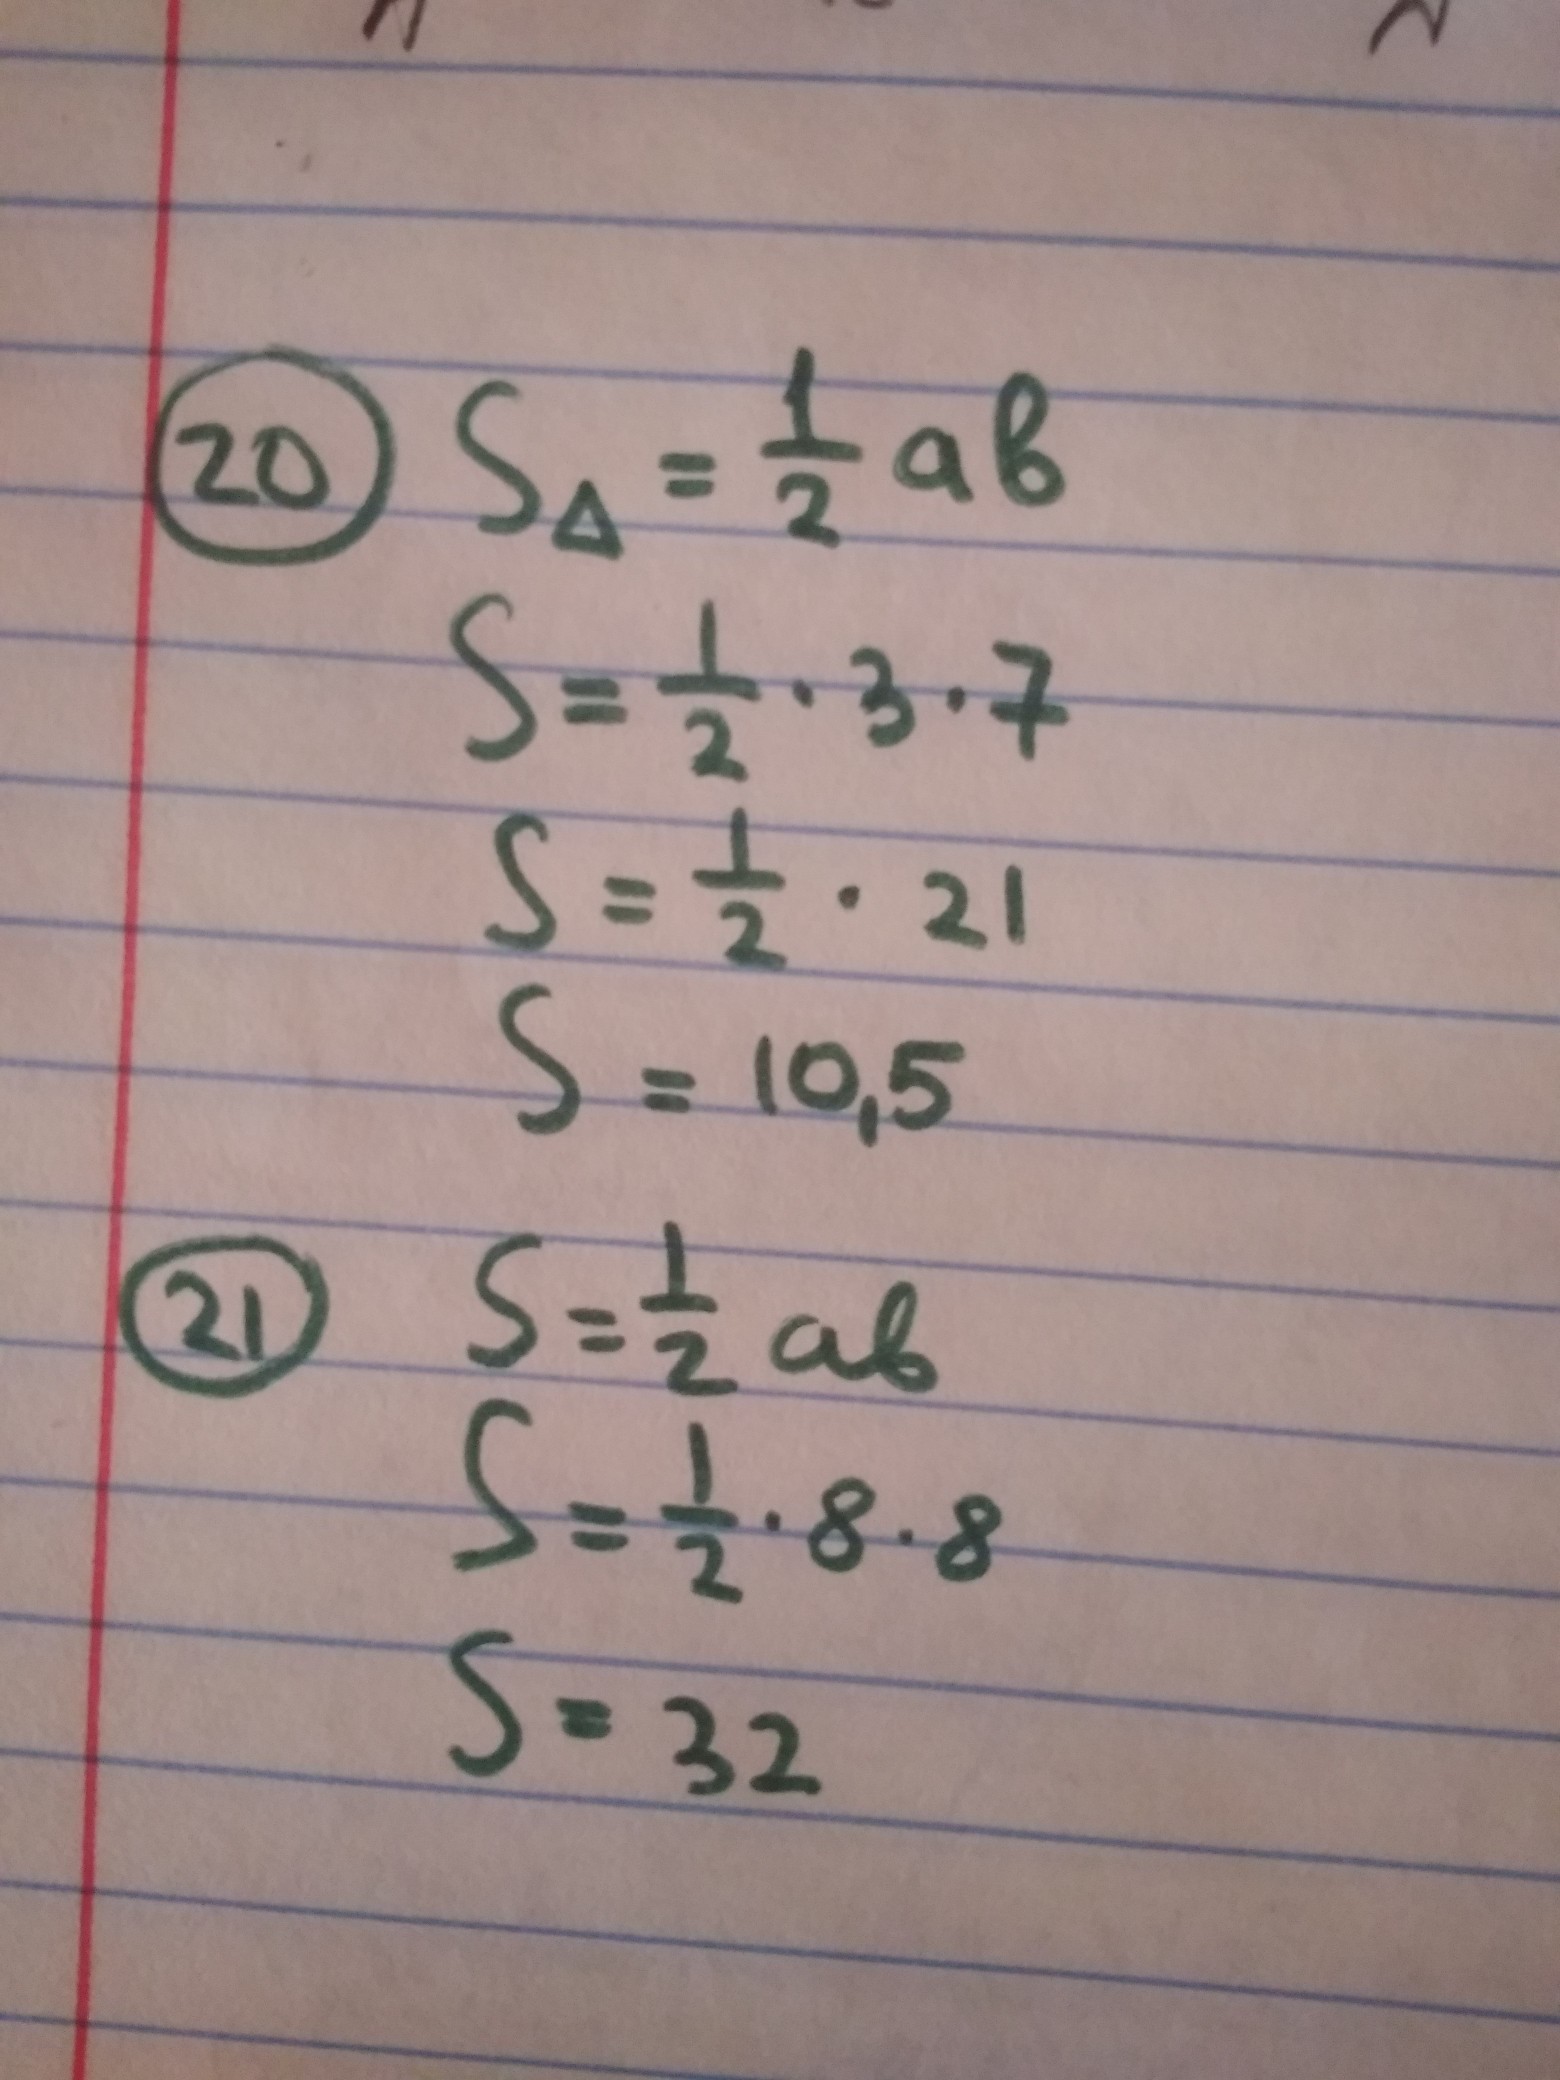 20 S△ = 1/2 ab
S = 1/2 · 3 · 7
S = 1/2 · 21
S = 10,5
21 S = 1/2 ab
S = 1/2 · 8 · 8
S = 32